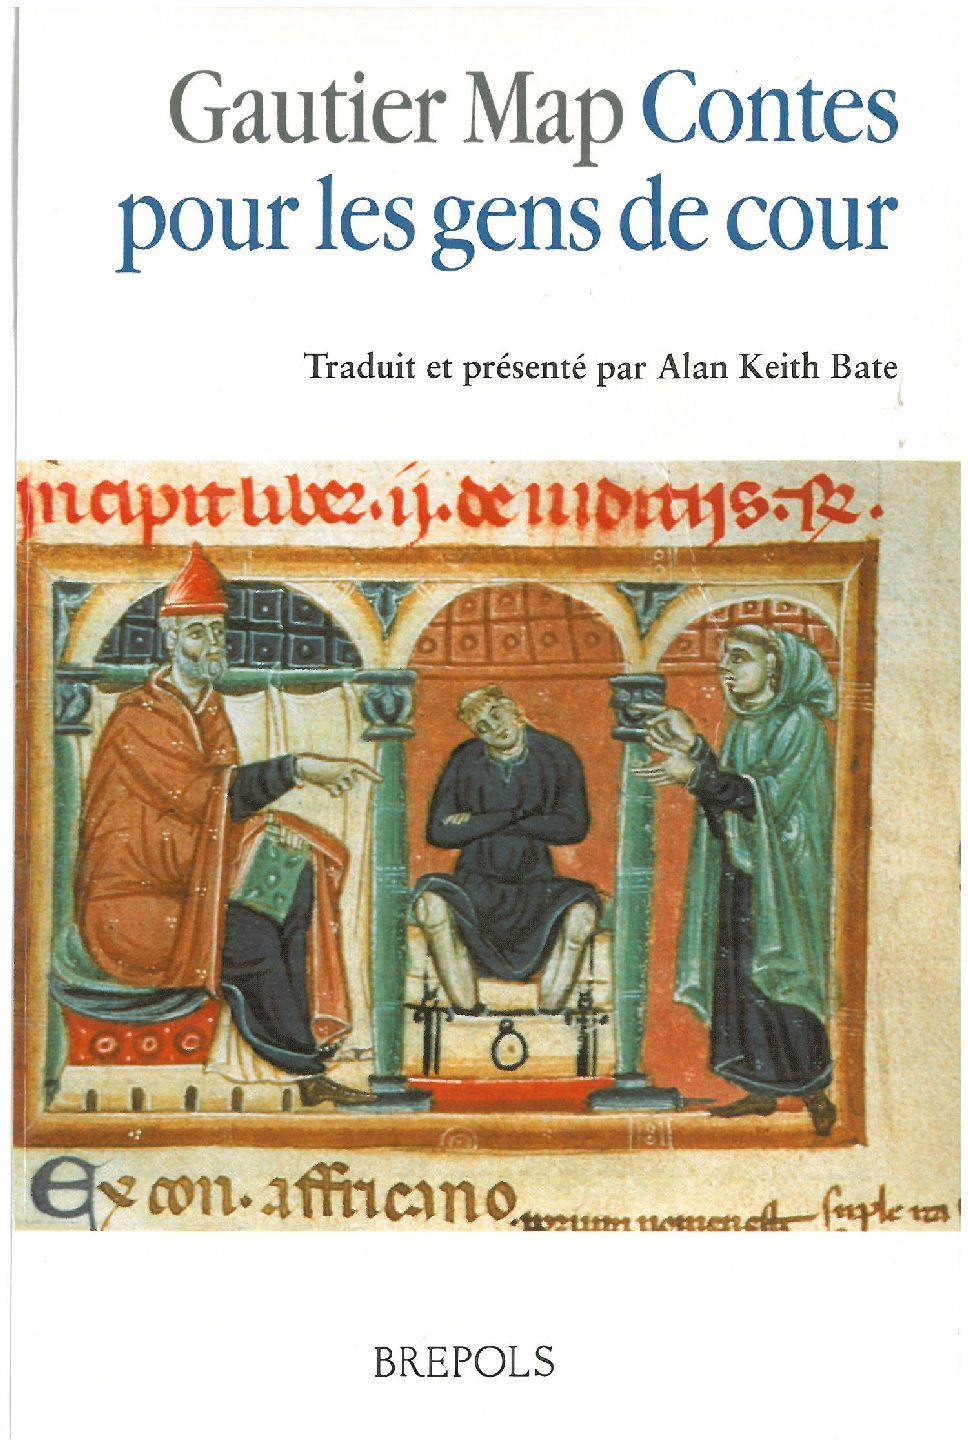 Gautier Map Contes
pour les gens de cour
Traduit et présenté par Alan Keith Bate
incipit liber .ij. de iuditijs.
Ex con. affricano
norium nomen est suple ita
BREPOLS